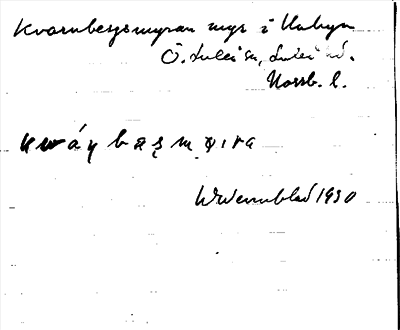 Kvarnbergsmyran myr i Unbyn
Ö. Luleå sn, Luleå hd.
Norrb. l.
kwáṇbæṣmyrra
W. Wennblad 1930